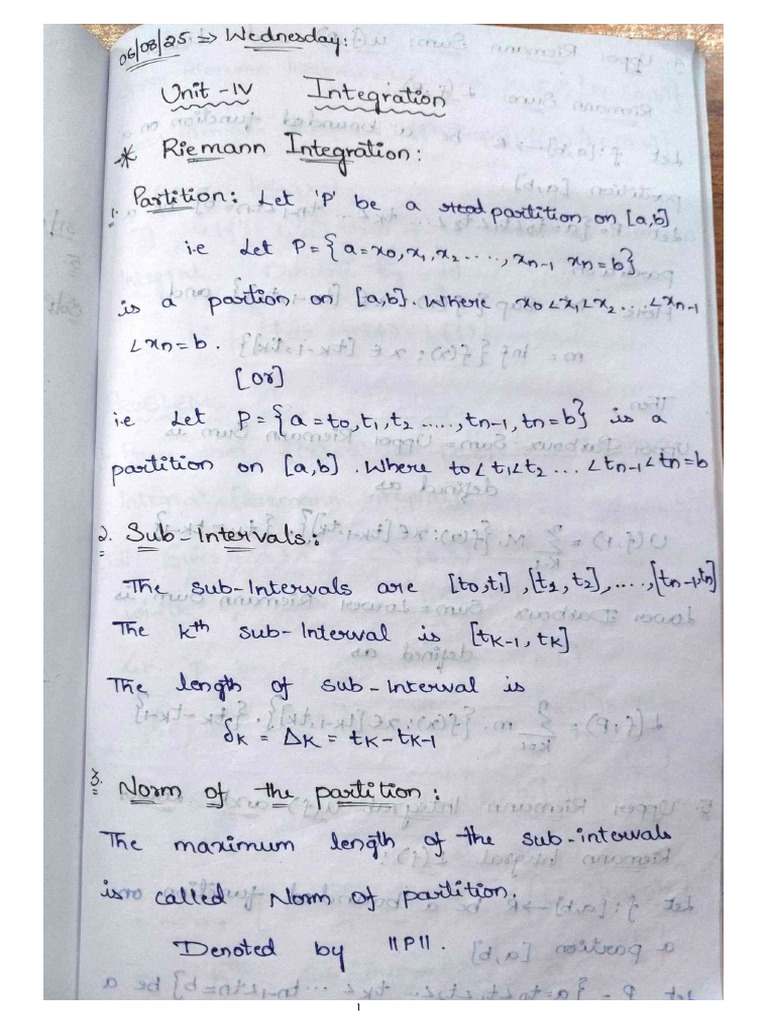 06/08/25 ⇒ Wednesday:
Unit - IV Integration
* Riemann Integration:
1. Partition: Let 'P' be a real partition on [a,b]
i.e Let P = {a = x0, x1, x2 ....., xn-1 xn = b}
is a partion on [a,b]. Where x0 < x1 < x2 ... < xn-1
< xn = b.
[or]
i.e Let P = {a = t0, t1, t2 ....., tn-1, tn = b} is a
partition on [a,b]. Where t0 < t1 < t2 ... < tn-1 < tn = b
2. Sub-Intervals:
The sub-Intervals are [t0,t1], [t1,t2], ...., [tn-1,tn]
The kth sub-Interval is [tK-1, tK]
The length of sub-interval is
δK = ΔK = tK - tK-1
3. Norm of the partition:
The maximum length of the sub-intervals
is called Norm of partition.
Denoted by ||P||.
1